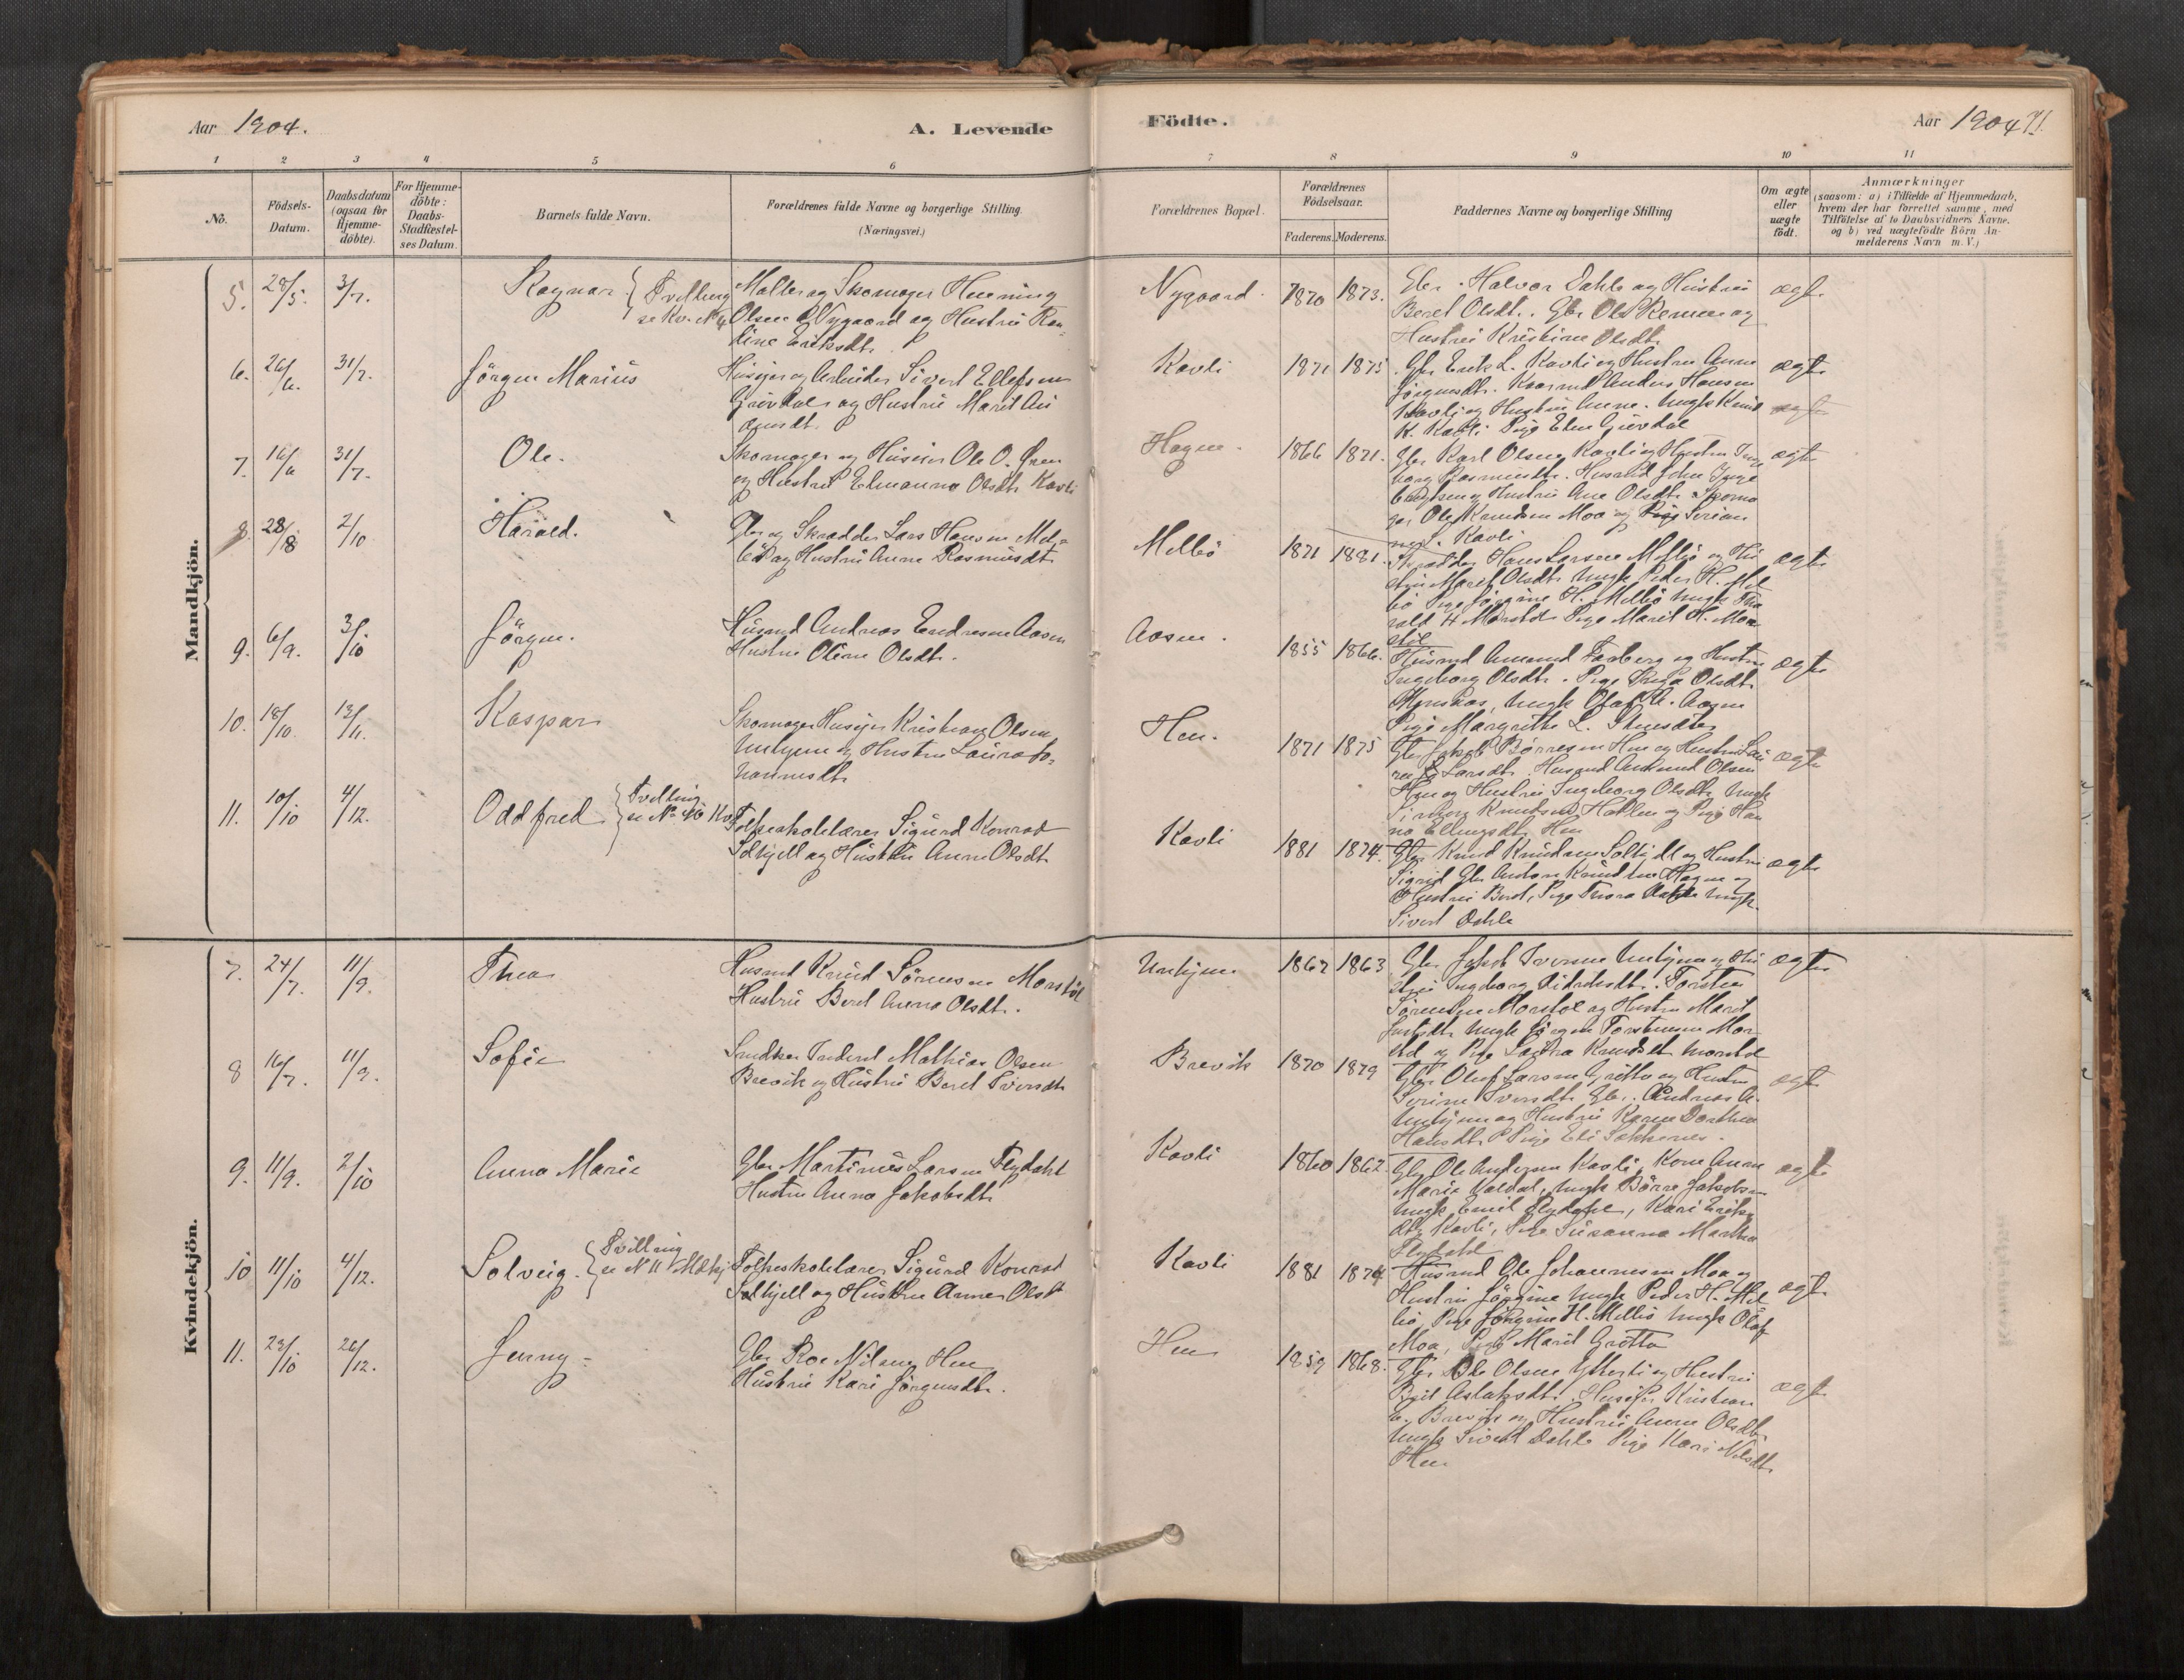 Aar 1904.
A. Levende
Födte.
Aar 1904 71.
1 2 3 4 5 6 7 8 9 10 11
No.
Födsels-Datum.
Daabsdatum (ogsaa for Hjemme-döbte).
For Hjemme-döbte: Daabs-Stadfæstel-ses Datum.
Barnets fulde Navn.
Forældrenes fulde Navne og borgerlige Stilling (Næringsvei.)
Forældrenes Bopæl.
Forældrenes Födselsaar.
Faderens. Moderens.
Faddernes Navne og borgerlige Stilling
Om ægte eller uægte födt.
Anmærkninger
(saasom: a) i Tilfælde af Hjemmedaab,
hvem der har forrettet samme, med
Tilföielse af to Daabsvidners Navne.
og b) ved uægtefödte Börn An-
melderens Navn m. V.)
Mandkjön.
5. 28/5. 3/7. Ragnar. { Tvilling se Kv. No 4
Maler og Skomager Henning
Olsen Nygaard og Hustru
Eriksdtr.
Nygaard. 1870 1873.
Gbr. Halvor Dahle og Hustru
Beret Olsdt. Gbr Ole
Hustru Kristine Olsdtr
ægte
6. 26/6. 31/7. Jörgen Marius
Husejer og Arbeider Sivert Ellefsen
Grövdal og Hustru Marit
Kavli 1871 1875
Gbr Erik L. Kavli og Hustru Anne
Jörgensdtr. Anders Hansen
Kavli og Hustru Anne. Ungk Knud
K. Kavli Pige Elen Grövdal
ægte
7. 16/6 31/7. Ole.
Skomager og Husejer Ole O.
og Hustru Elmanna Olsdtr Kavli
Hagen. 1866 1871.
Gbr Karl Olsen Kavli og Hustru Inge
borg Rasmusdtr. Husmd John
og Hustru Ane Olsdtr Skoma
ger Ole Knudsen Moa og Pige
Kavli
ægte
8. 28/8 2/10 Harald.
Gbr og Skrædder Lars Hansen Mel-
bö og Hustru Anne Rasmusdtr
Melbö 1871 1881.
Skrædder Hans Larsen Melbö og Hu
stru Marit Olsdtr Ungk Peder H. Mel
bö Pige Jörgine H. Melbö Ungk
H Morstöl Pige Marit H. Mor
stöl
ægte
9. 6/9. 3/10 Jörgen.
Husmd Andreas Endresen Aasen
Hustru Oline Olsdtr.
Aasen. 1855 1866.
Husmd Amund og Hustru
Ingeborg Olsdtr. Pige Olsdtr
Ungk Olaf A. Aasen
Pige Margrethe L.
ægte
10. 18/10. 13/11. Kaspar
Skomager Husejer Kristian Olsen
Unhjem og Hustru Laura Jo-
hannesdtr
Hen. 1871 1875
Gbr Jakob Börresen Hen og Hustru
Larsdtr. Husmd Amund Olsen
Hen og Hustru Ingeborg Olsdtr Ungk
Knudsen og Pige Han
na Ellingsdtr Hen
ægte
11. 10/10 4/12. Oddfred { Tvilling se No 10 Kv
Folkeskolelærer Sigurd Konrad
Solhjell og Hustru Anne Olsdtr
Kavli 1881 1874.
Gbr Knud Knudsen Solhjell og Hustru
Sigrid Gbr Anders Knudsen Hagen og
Hustru Beret, Pige Thora Dahle Ungk.
Sivert Dahle
ægte
Kvindekjön.
7. 24/7. 11/9. Thea
Husmd Knud Sörensen Morstöl
Hustru Beret Anna Olsdtr.
Unhjem 1862 1863
Gbr Jakob Iversen Unhjem og Hu
stru Ingeborg Didriksdtr. Torstein
Sörensen Morstöl og Hustru Marit
Ungk Jörgen Torstensen Mor
stöl og Pige Laura Knudsdt Morstöl
ægte
8 16/7. 11/9. Sofie
Mathias Olsen
Brevik og Hustru Beret Iversdtr
Brevik 1870 1879
Gbr Oluf Larsen Grötta og Hustru
Serine Iversdtr Gbr. Andreas A.
Unhjem og Hustru Karen Dorthea
Hansdtr Pige Eli Sekkenes.
ægte
9. 11/9. 2/10 Anna Marie
Gbr Martinus Larsen Flydahl
Hustru Anna Jakobsdtr
Kavli 1860 1862.
Gbr Ole Andersen Kavli, Kone Anne
Marie Valdal, Ungk Börre Jakobsen
Ungk Emil Flydahl, Kari Eriks
dtr Kavli, Pige Susanna Martha
Flydahl
ægte
10 11/10 4/12. Solveig. { Tvilling se N 11 Mdkj
Folkeskolelærer Sigurd Konrad
Solhjell og Hustru Anne Olsdt
Kavli 1881 1874
Husmd Ole Johannesen Moa og
Hustru Jörgine Ungk Peder H. Mel
bö, Pige Jörgine H. Melbö Ungk Olaf
Moa, Pige Marit Grötta
ægte
11. 23/10 26/12. Jenny -
Gbr Roe Nilsen Hen
Hustru Kari Jörgensdtr.
Hen 1859 1868.
Gbr Ole Olsen Ytterli og Hustru
Berit Aslaksdtr. Husejer Kristian
E. Brevik og Hustru Anne Olsdtr
Ungk Sivert Dahle Pige Kari Nilsdtr
Hen
ægte